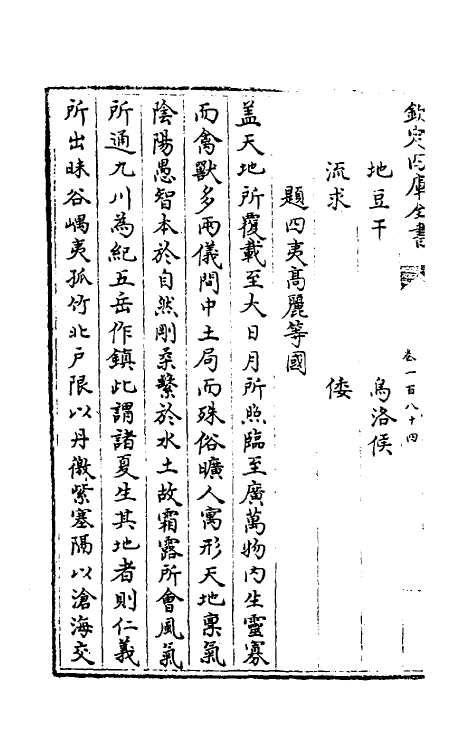 欽定四庫全書
卷一百八十四
地豆干 烏洛侯
流求 倭
題四夷高麗等國
蓋天地所覆載至大日月所照臨至廣萬物内生靈寡
而禽獸多兩儀間中土局而殊俗曠人寓形天地禀氣
陰陽愚智本於自然剛柔繫於水土故霜露所會風氣
所通九川為紀五岳作鎮此謂諸夏生其地者則仁義
所出昧谷嵎夷孤竹北戶限以丹徼紫塞隔以滄海交